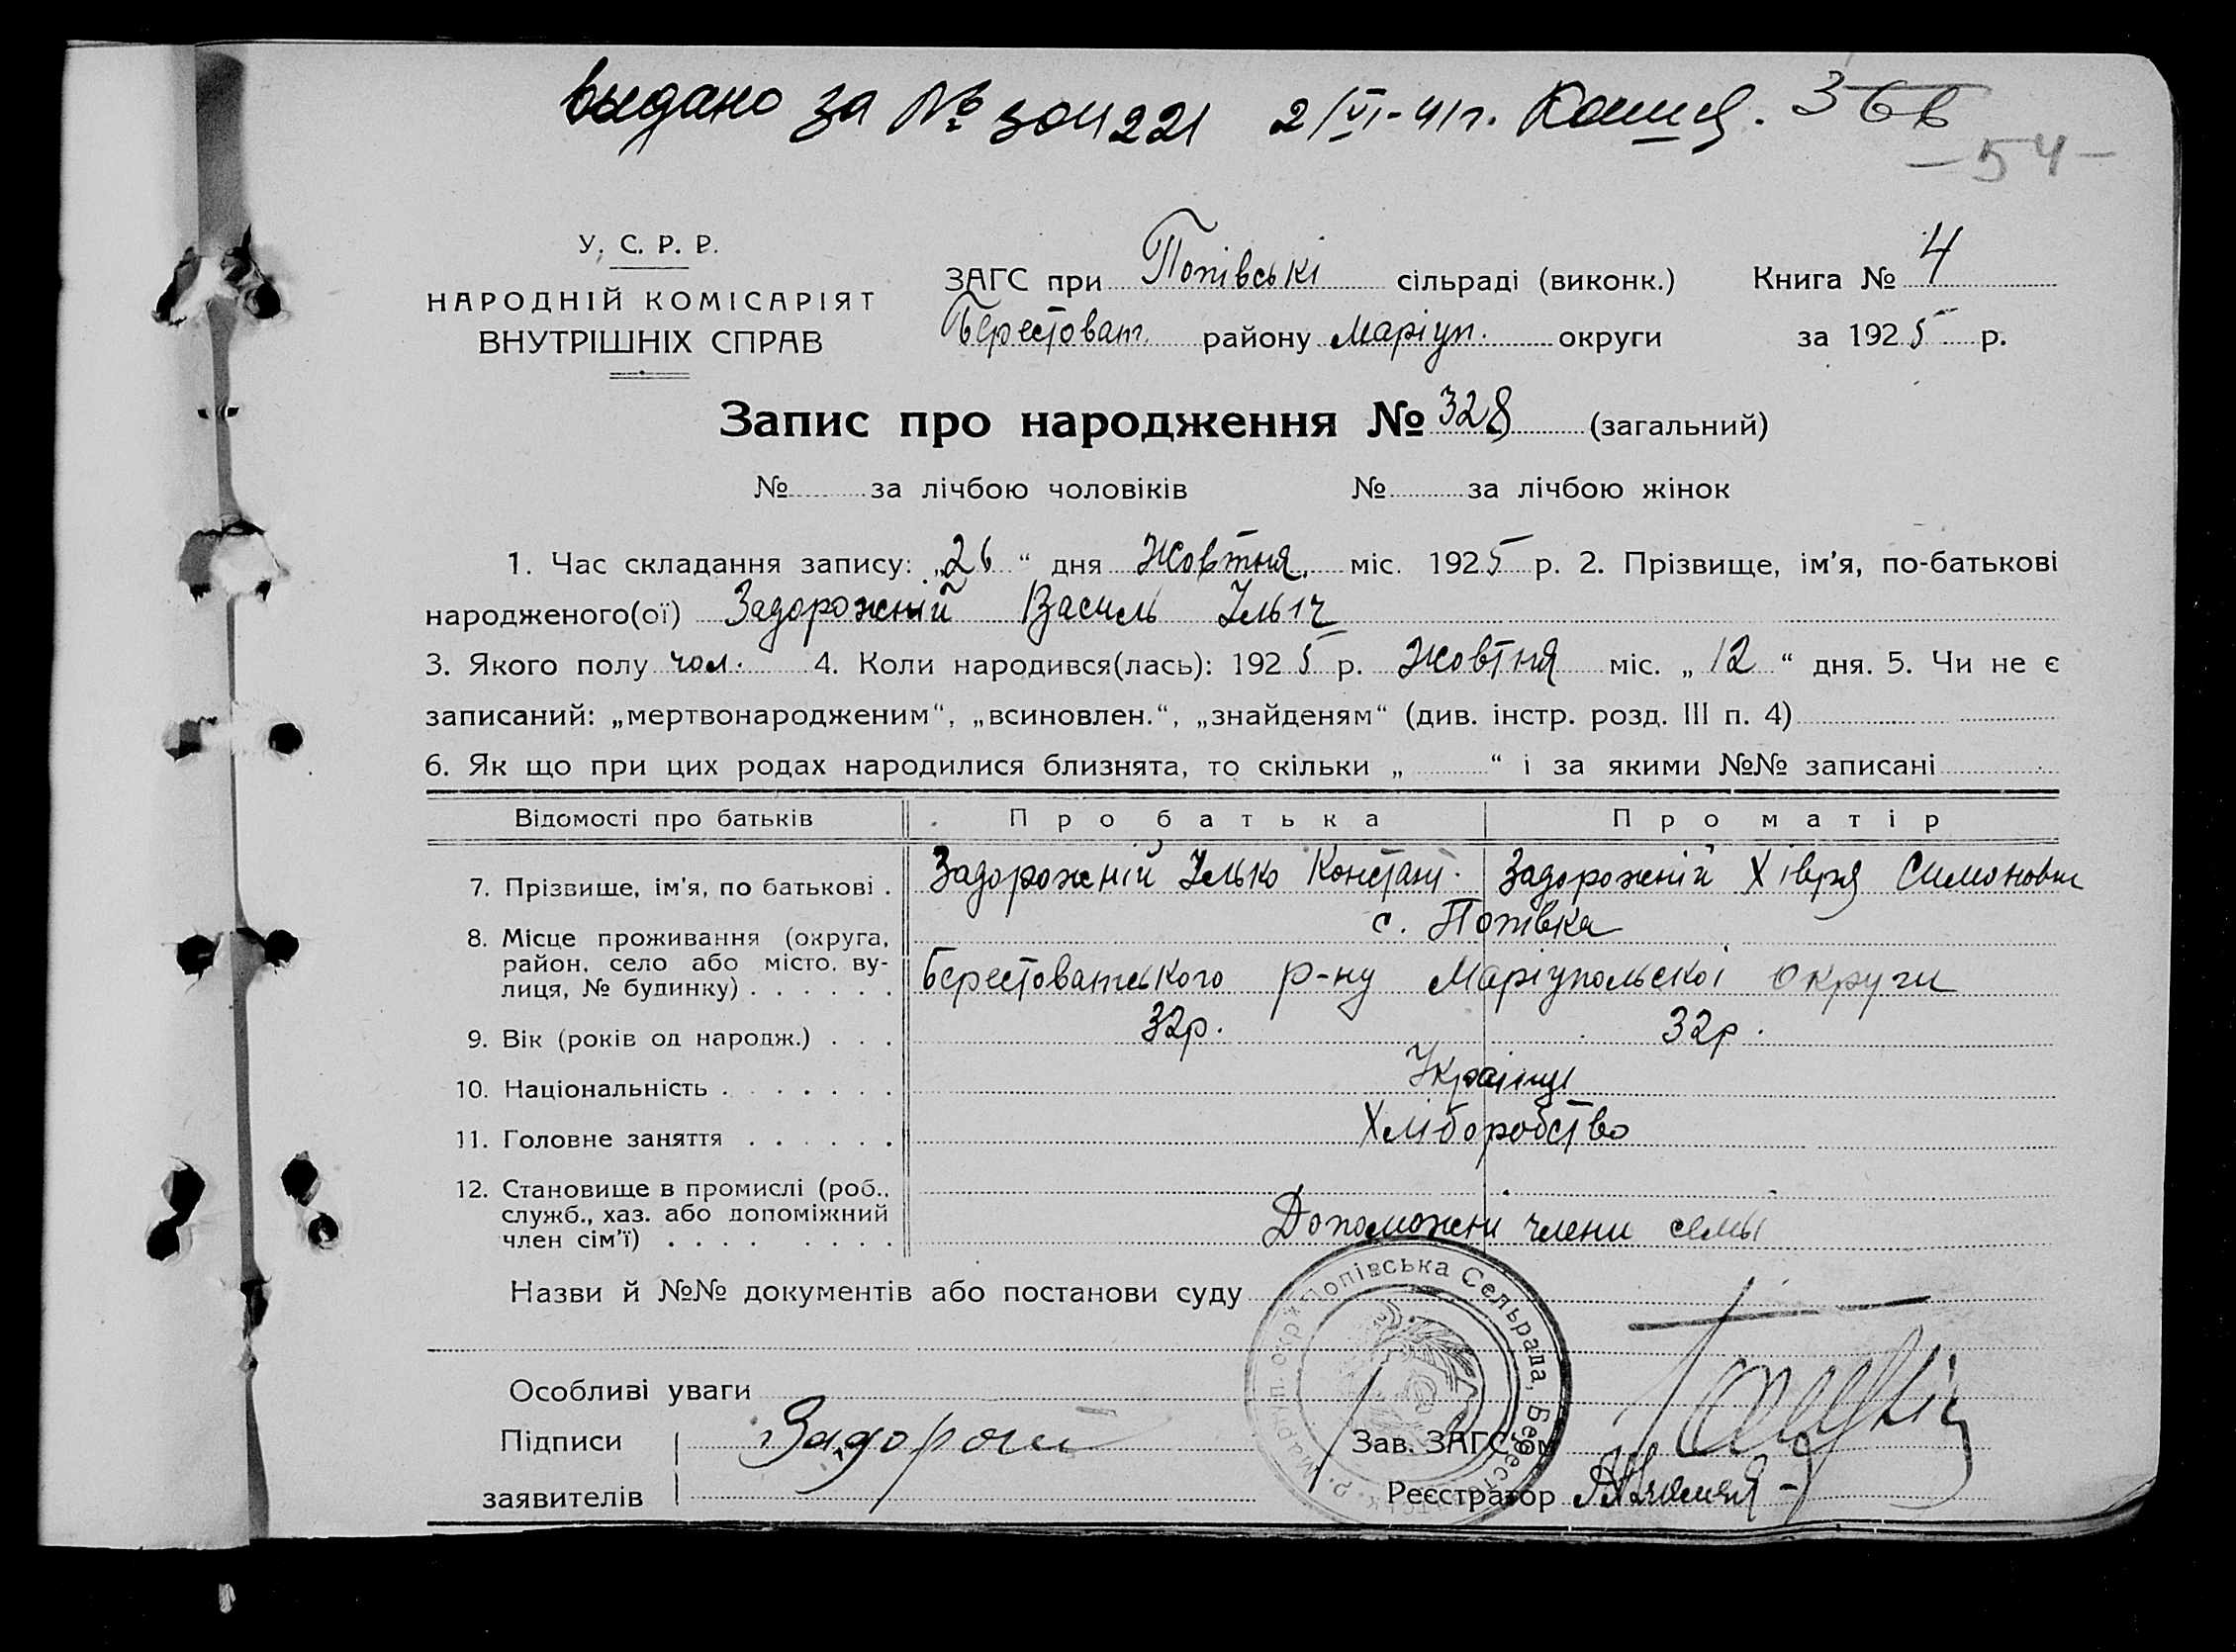 выдано за № 304221 2/VI-41г. 366
-54-
У. С. Р. Р.
НАРОДНІЙ КОМІСАРІЯТ
ВНУТРІШНІХ СПРАВ
ЗАГС при Попівські сільраді (виконк.) Книга № 4
Берестоват. району Маріуп. округи за 1925 р.
Запис про народження № 328 (загальний)
№ за лічбою чоловіків № за лічбою жінок
1. Час складання запису: „26“ дня Жовтня міс. 1925 р. 2. Прізвище, ім'я, по-батькові
народженого(ої) Задорожній Василь Ільіч
3. Якого полу чол. 4. Коли народився(лась): 1925 р. Жовтня міс. „12“ дня. 5. Чи не є
записаний: „мертвонародженим“, „всиновлен.“, „знайденям“ (див. інстр. розд. III п. 4)
6. Як що при цих родах народилися близнята, то скільки „ “ і за якими №№ записані
Відомості про батьків Про батька Про матір
7. Прізвище, ім'я, по батькові . Задорожній Ілько Констант. Задорожній Хівря Симоновн
с. Попівка
8. Місце проживання (округа,
район, село або місто, ву-
лиця, № будинку) . . . . . . Берестоватського р-ну Маріупольскоі округи
9. Вік (років од народж.) . . . 32р. 32р.
10. Національність . . . . . . . Українці
11. Головне заняття . . . . . . Хліборобство
12. Становище в промислі (роб.,
служб., хаз. або допоміжний
член сім'ї) . . . . . . . . Допоможні члени семьі
Назви й №№ документів або постанови суду
Попівська Сельрада, Берест р. Маріуп. окр.
Особливі уваги
Підписи Задорожн Зав. ЗАГС'ом
заявителів Реєстратор